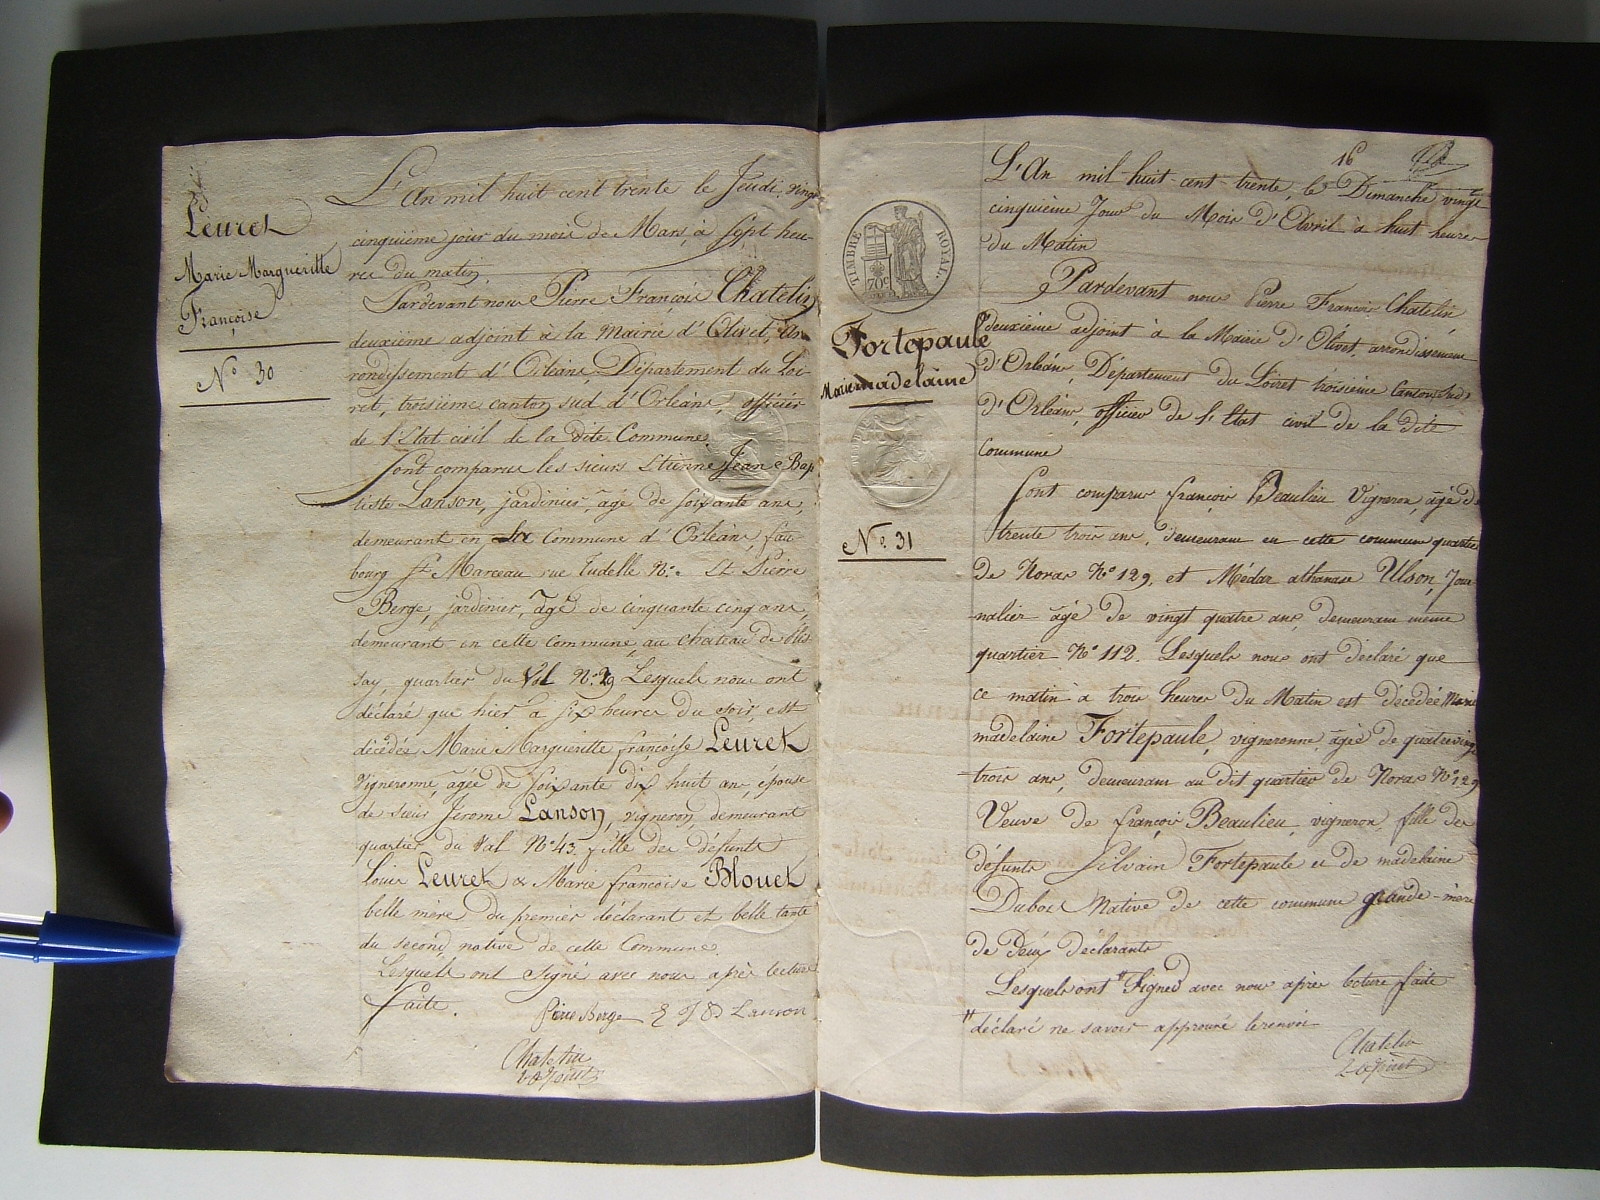 Leuret
Marie Margueritte
Françoise
N.° 30
L'An mil huit cent trente le Jeudi vingt
cinquième jour du mois de Mars, à sept heu-
res du matin,
Pardevant nous Pierre François Chatelin
deuxième adjoint à la mairie d'Olivet, ar-
rondissement d'Orléans, Département du Loi-
ret, troisième canton sud d'Orléans, officier
de l'Etat civil de la dite Commune.
Sont comparus les sieurs Etienne Jean Bap-
tiste Lanson, jardinier, âgé de soixante ans,
demeurant en la Commune d'Orléans, fau-
bourg St Marceau rue Tudelle N.° Et Pierre
Berge, jardinier, âgé de cinquante cinq ans,
demeurant en cette Commune, au chateau de
say, quartier du Val N.° 29 Lesquels nous ont
déclaré que hier à six heures du soir, est
décédée Marie Margueritte françoise Leuret
Vigneronne, agée de soixante dix huit ans, épouse
de sieur Jerome Lanson, vigneron, demeurant
quartier du Val N.° 43, fille des défunts
Louis Leuret & Marie françoise Blouet
belle mère du premier déclarant et belle tante
du second, native de cette Commune.
Lesquels ont signé avec nous après lecture
faite.
Pierre Berge E J B Lanson
Chatelin
2 adjoint
16
TIMBRE ROYAL.
70c
Fortepaule
Marie madelaine
N.° 31
L'An mil huit cent trente, le Dimanche vingt
cinquième Jour du Mois d'Avril à huit heures
du Matin
Pardevant nous Pierre François Chatelin,
deuxième adjoint à la Mairie d'Olivet, arrondissement
d'Orléans, Département du Loiret troisième Canton Sud
d'Orléans, officier de l'Etat civil de la dite
Commune
Sont comparus françois Beaulieu Vigneron, âgé de
trente trois ans, demeurant en cette commune quartier
de Noras N° 129, et Médar athanase Ulson, Jour-
nalier âgé de vingt quatre ans, demeurant même
quartier N° 112. Lesquels nous ont déclaré que
ce matin à trois heures du Matin est décédée Marie
madelaine Fortepaule, vigneronne, agée de quatrevingt
trois ans, demeurant au dit quartier de Noras N° 129
Veuve de françois Beaulieu, vigneron, fille des
défunts Silvain Fortepaule et de madelaine
Dubois Native de cette commune grande-mère
de Deux déclarants
Lesquels ont # Signed avec nous après lecture faite
# déclaré ne savoir approuvé le renvoi
Chatelin
2 adjoint